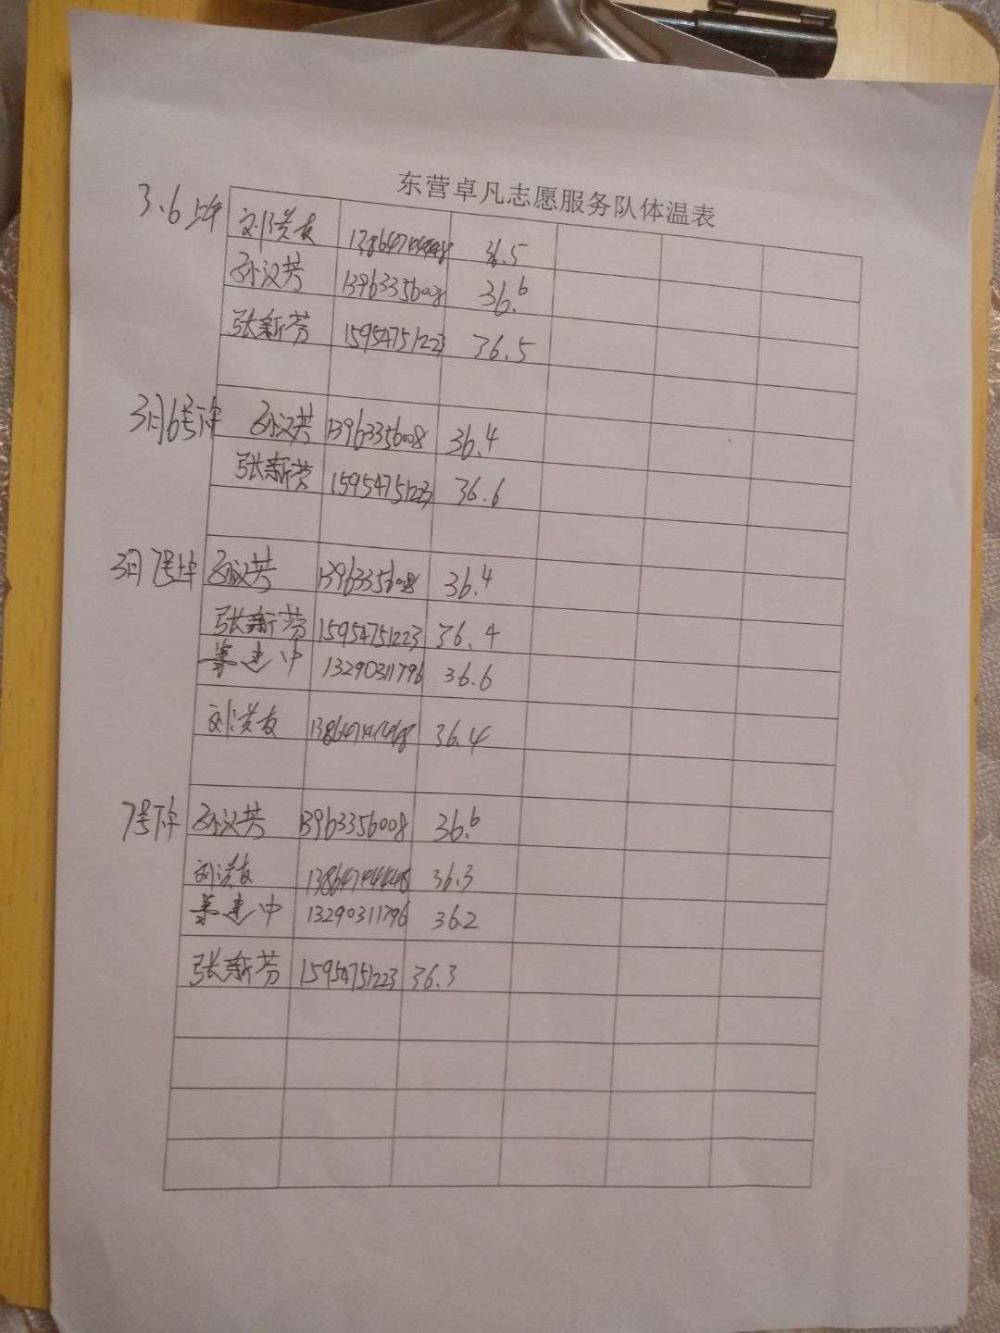 东营卓凡志愿服务队体温表
3.6上午 刘洪友 36.5
孙汉芳 13963356008 36.6
张新芳 15954751223 36.5
3月6号下午 孙汉芳 13963356008 36.4
张新芳 15954751223 36.6
3月7号上午 孙汉芳 13963356008 36.4
张新芳 15954751223 36.4
建中 13290311796 36.6
刘洪友 36.4
7号下午 孙汉芳 13963356008 36.6
刘洪友 36.3
建中 13290311796 36.2
张新芳 15954751223 36.3